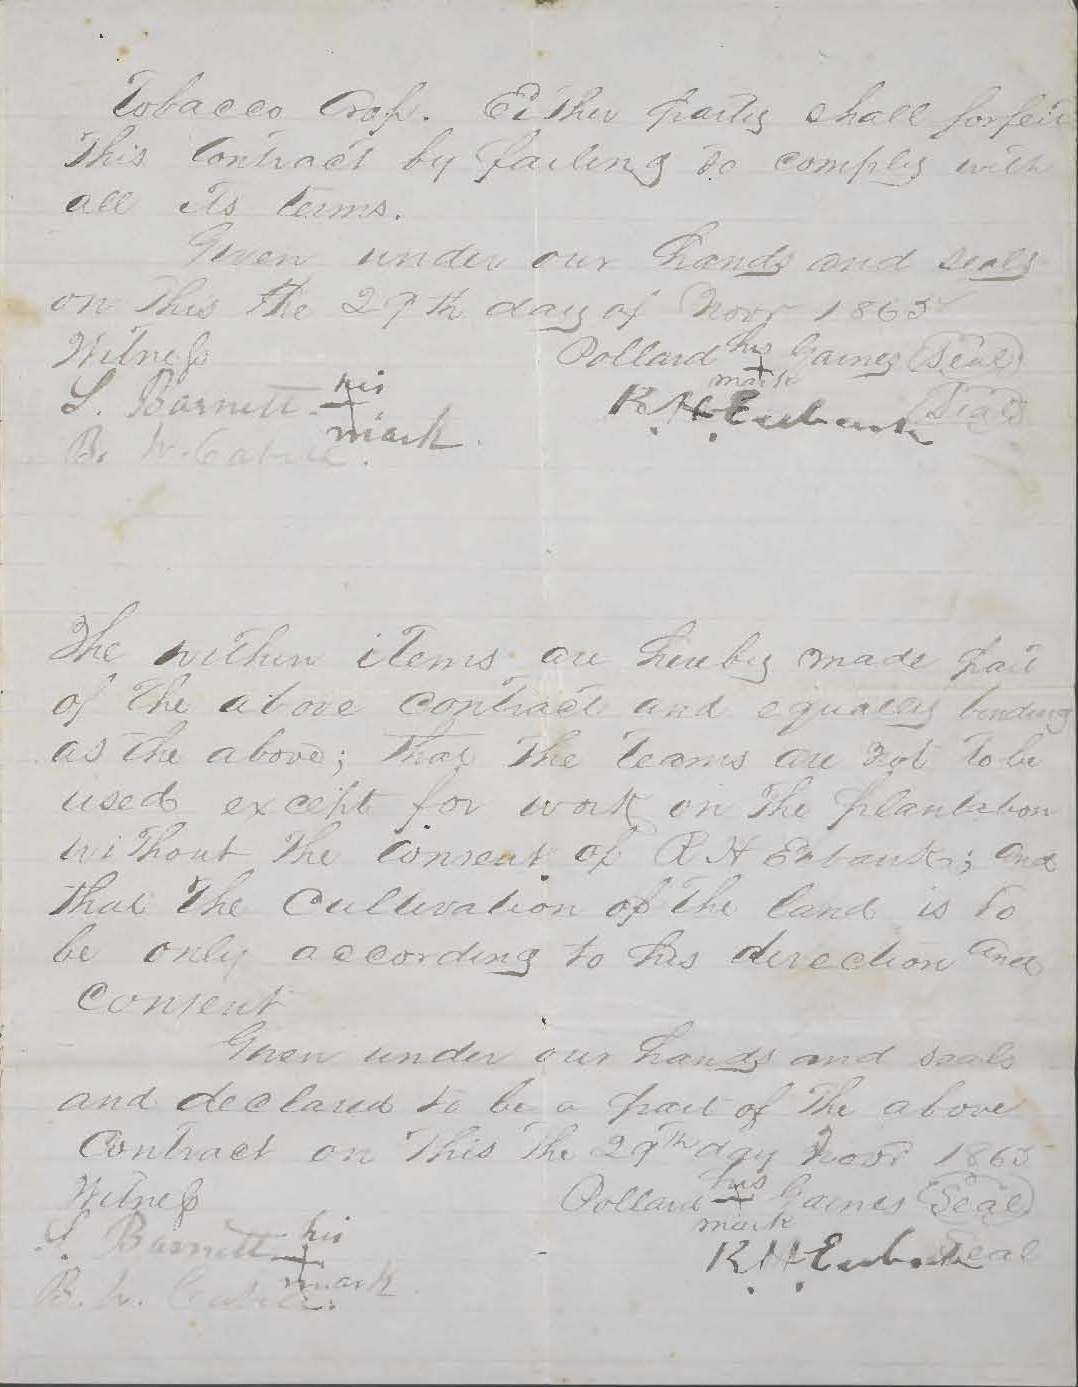 Tobacco Crop. Either party shall forfeit
This Contract by failing to comply with
all its terms.
Given under our hands and seals
on this the 29th day of Novr 1865
Witness Pollard his Gaines (Seal)
mark
L. Barnett his R. H. Eubank (Seal)
mark
B. W. Cabell.
The within items are hereby made part
of the above contract and equally binding
as the above; that the teams are not to be
used except for work on the plantation
without the consent of R H Eubank; and
that the cultivation of the land is to
be only according to his direction and
consent
Given under our hands and seals
and declared to be a part of the above
Contract on this the 29th day Novr 1865
Witness Pollard his Gaines (Seal)
mark
L. Barnett his R. H. Eubank Seal
mark
B. W.